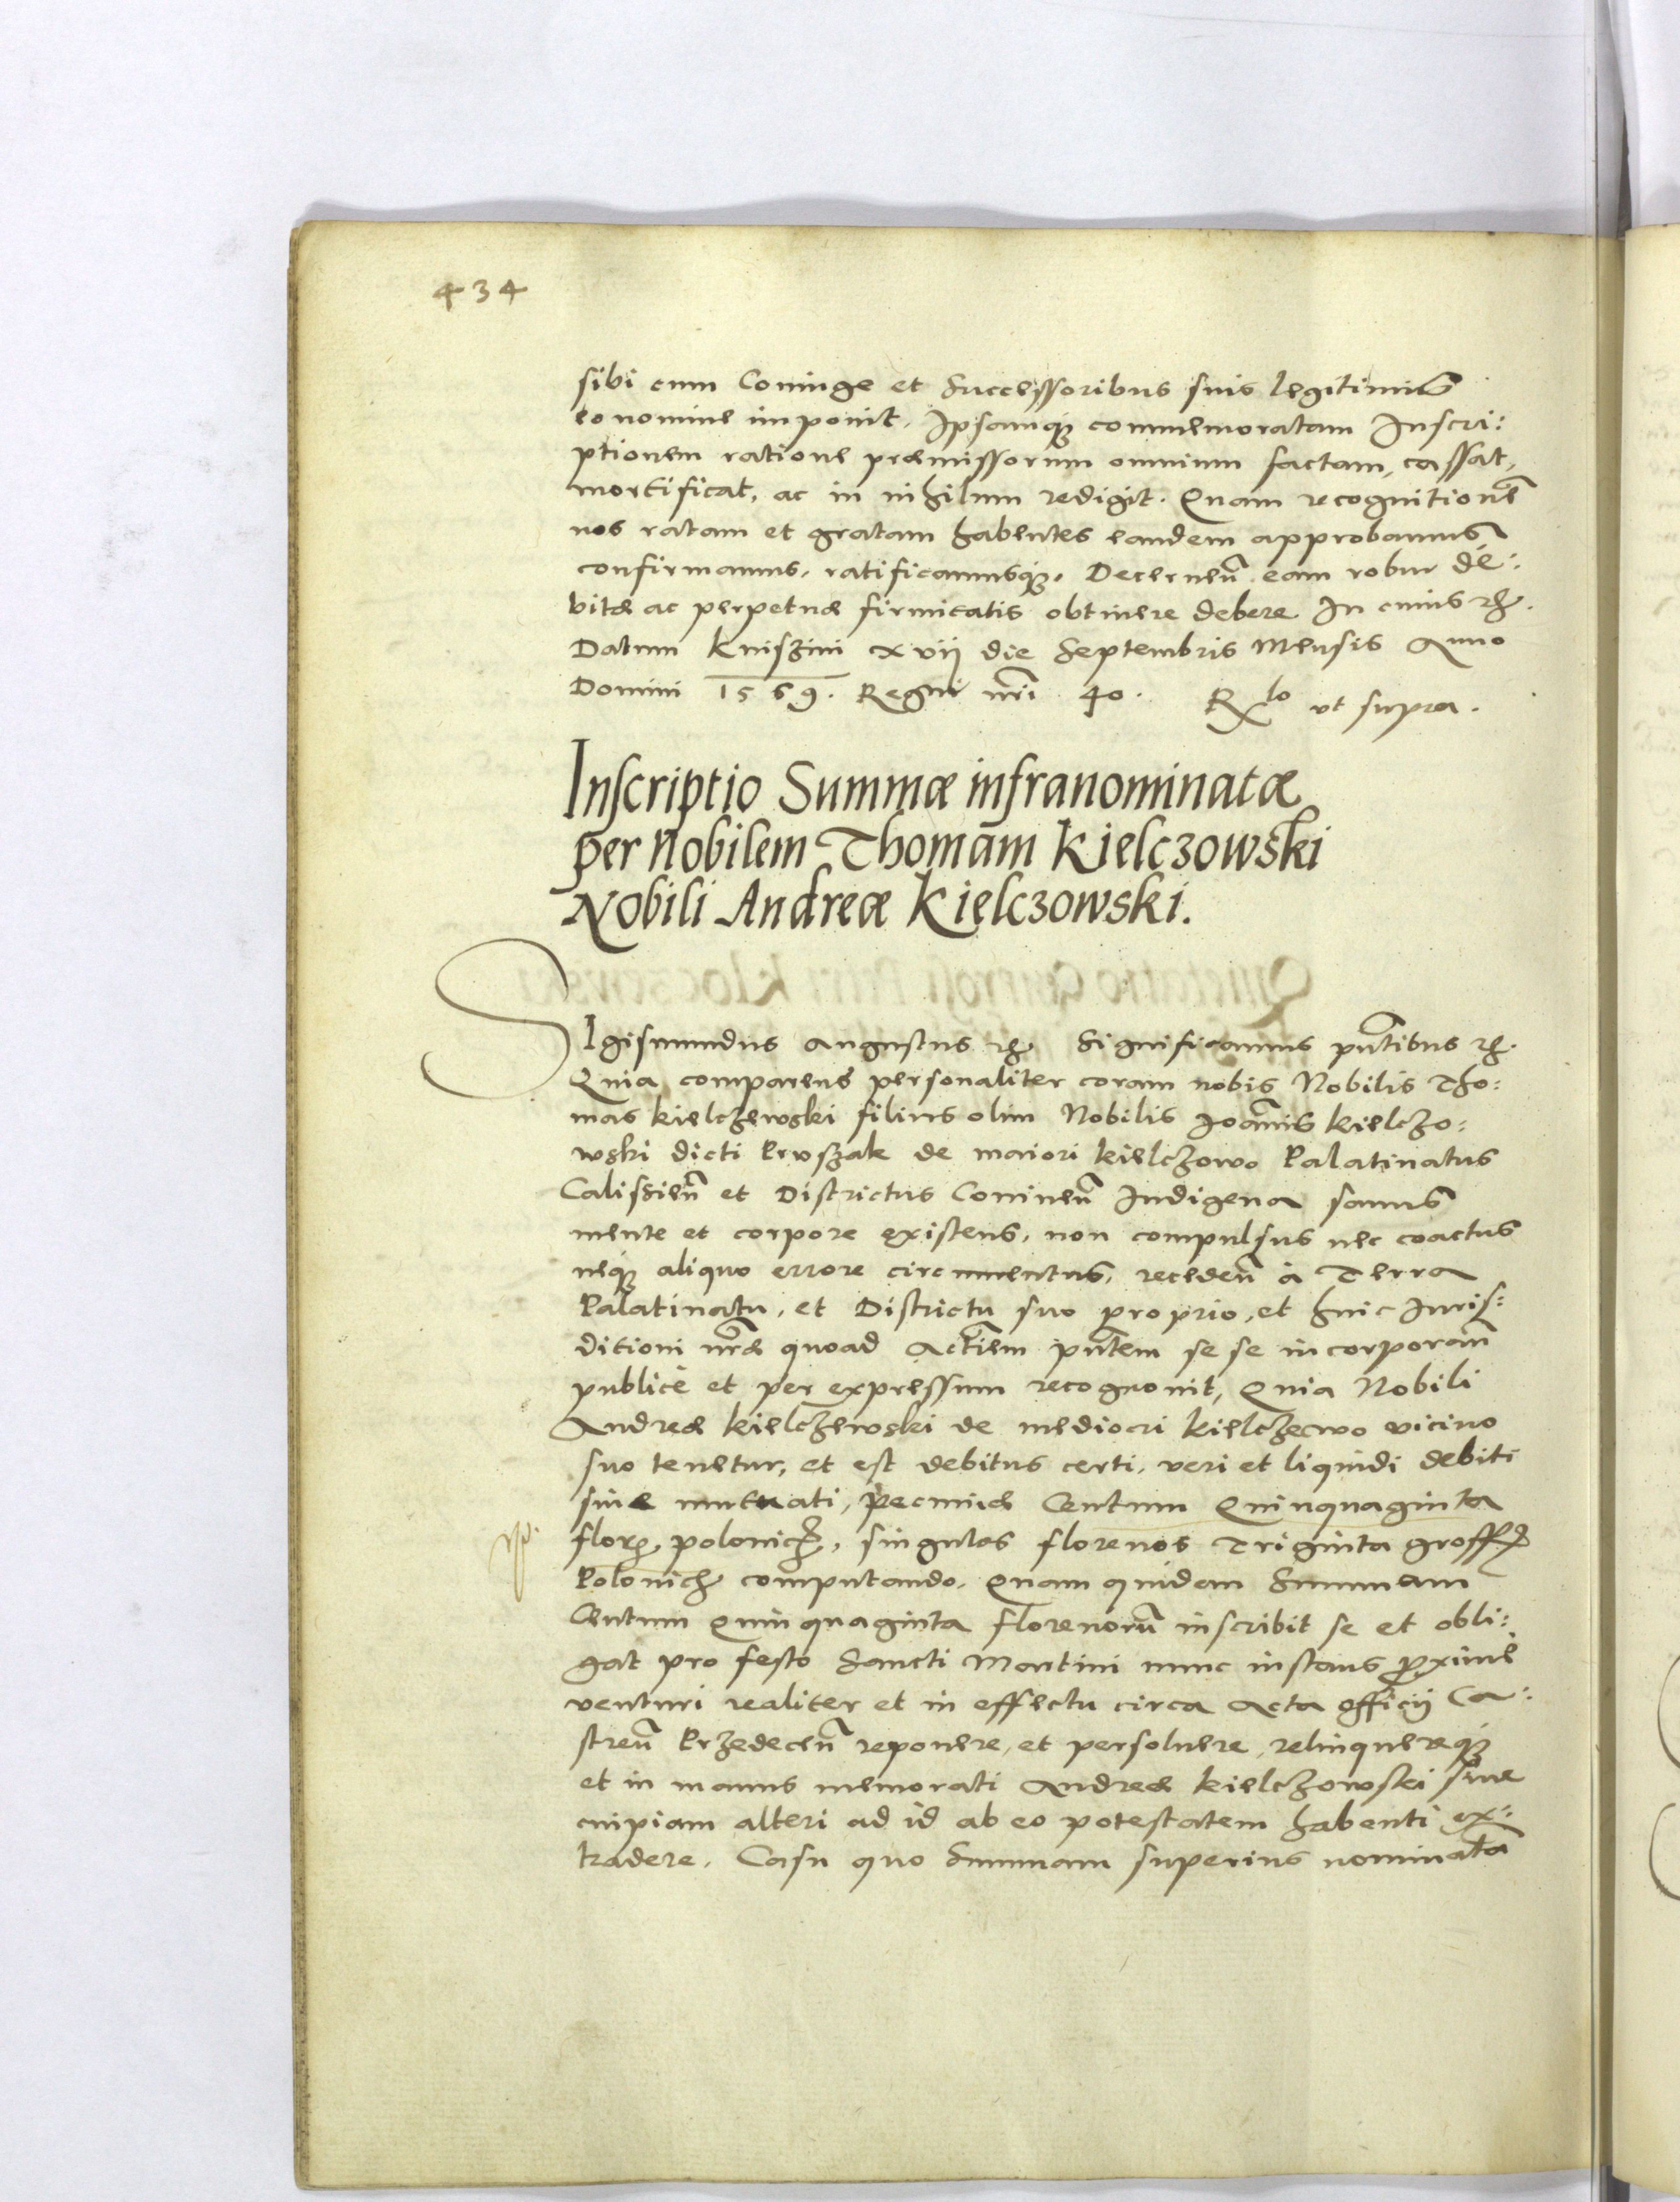 434
sibi cum Coniuge et Successoribus suis legitimis
eo nomine imponit, Ipsamq̃ commemoratam Inscri:
ptionem ratione præmissorum omnium factam, cassat,
mortificat, ac in nihilum redigit. Quam recognitionẽ
nos ratam et gratam habentes eandem approbamus
confirmamus, ratificamusq̃, Decerneñ eam robur de:
bitæ ac perpetuæ firmitatis obtinere debere. In cuius rei.
Datum Kniszini xvij die Septembris Mensis Anno
Domini 1569. Regni nr̃i 40. R^lo ut supra.
Inscriptio Summæ infranominatæ
per Nobilem Thomam Kielczowski
Nobili Andreæ Kielczowski.
SIgismundus Augustus etc. Significamus pñtibus etc.
Quia comparens personaliter coram nobis Nobilis Tho:
mas Kielczewski filius olim Nobilis Joãnis Kielczo:
wski dicti Pruszak de maiori Kielczowo Palatinatus
Calissieñ et Districtus Conineñ Indigena sanus
mente et corpore existens, non compulsus nec coactus
neq̃ aliquo errore circumuentus, recedeñ à Terra
Palatinatu, et Districtu suo proprio, et huic Juris:
ditioni nr̃æ quoad Actũem pñtem se se incorporañ
publicè et per expressum recognouit, Quia Nobili
Andreæ Kielczewski de mediocri Kielczewo vicino
suo tenetur, et est debitus certi, veri et liquidi debiti
siue mutuati, pecuniæ Centum Quinquaginta
flor, polonich, singulos florenos Triginta gross
Polonich computando. Quam quidem Summam
Centum Quinquaginta florenorũ inscribit se et obli:
gat pro festo Sancti Martini nunc instans proxime
venturi realiter et in effectu circa Acta officij Ca:
streñ Przedeceñ reponere, et persoluere, relinquereq̃
et in manus memorati Andreæ Kielczowski siue
cuipiam alteri ad id ab eo potestatem habenti ex:
tradere. Casu quo Summam superius nominatã